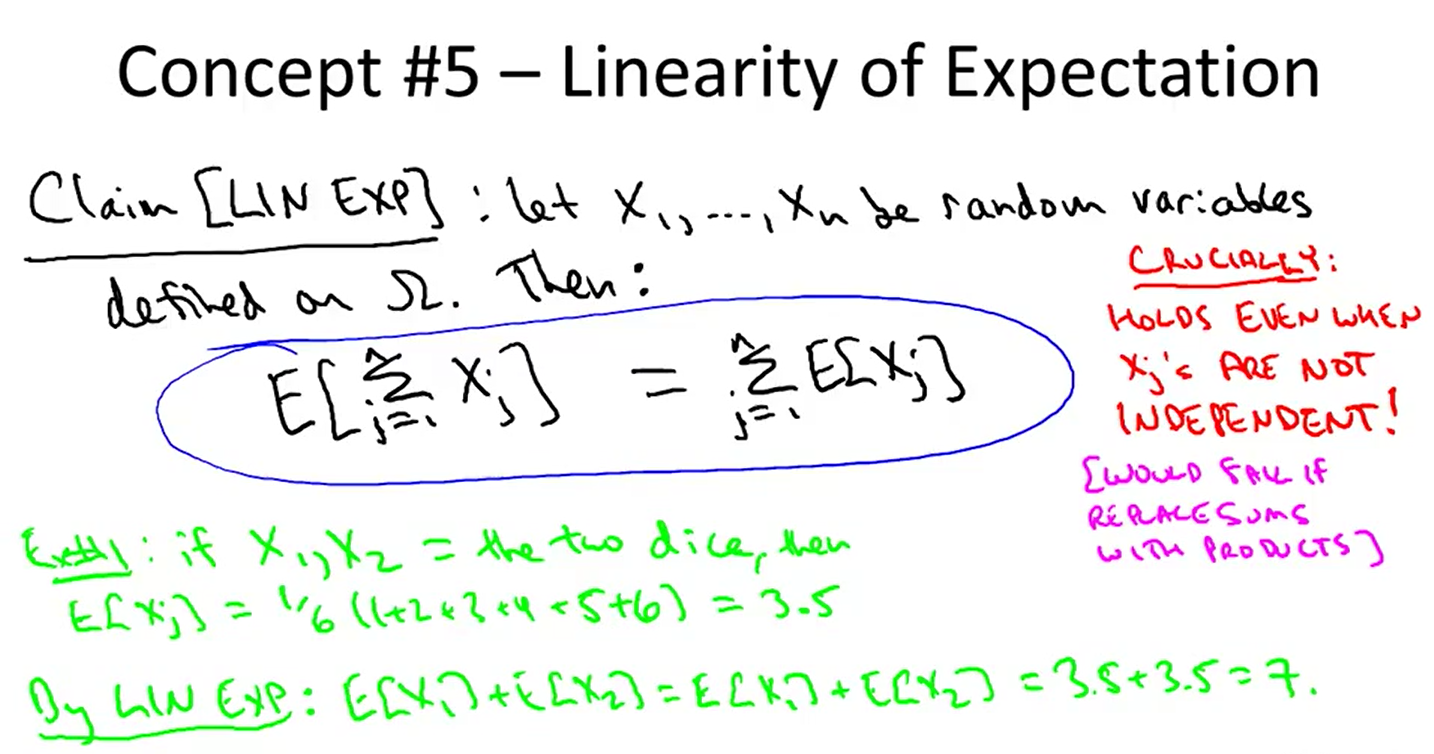 Concept #5 – Linearity of Expectation
Claim [LIN EXP] : let X₁, ..., Xₙ be random variables
defined on Ω. Then:
E[∑ⱼ₌₁ⁿ Xⱼ] = ∑ⱼ₌₁ⁿ E[Xⱼ]
CRUCIALLY:
HOLDS EVEN WHEN
Xⱼ's ARE NOT
INDEPENDENT!
[WOULD FAIL IF
REPLACE SUMS
WITH PRODUCTS]
Ex#1: if X₁, X₂ = the two dice, then
E[Xⱼ] = 1/6 (1+2+3+4+5+6) = 3.5
By LIN EXP: E[X₁]+E[X₂] = E[X₁] + E[X₂] = 3.5+3.5 = 7.